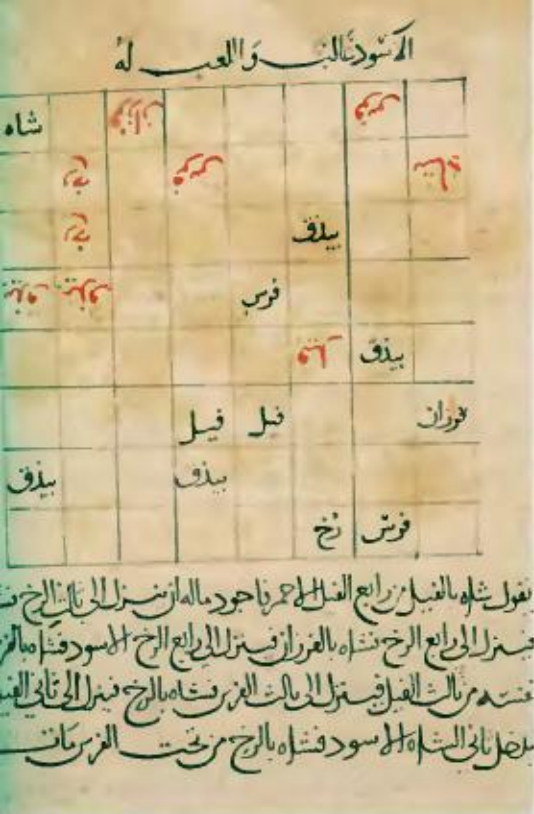 الاسود غالب واللعب له
شاه فرزان فرس
رخ فرس
رخ بيذق
بيذق بيذق فرس
فيل بيذق
فيل فيل فرزان
بيذق بيذق
رخ فرس
يقول شاه بالفيل من رابع الفيل الاحمر فاجود ماله ان ينزل الى ثالث الرخ
فينزل الى رابع الرخ فشاه بالفرزان فينزل الى رابع الرخ الاسود فشاه
من ثالث الفيل فينزل الى ثالث الفرس فشاه بالرخ فينزل الى ثاني
يدخل ثاني الشاه الاسود فشاه بالرخ من تحت الفرس مات